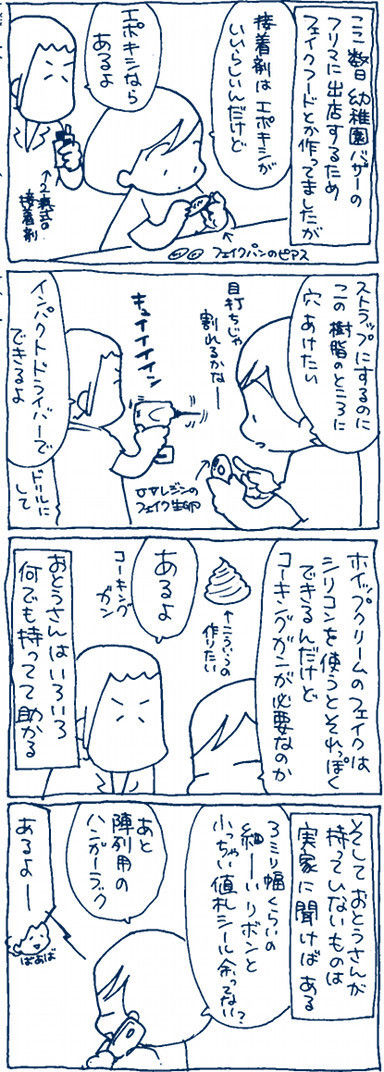 ここ数日 幼稚園バザーの
フリマに出店するため
フェイクフードとか作ってましたが
接着剤はエポキシが
いいらしいんだけど
エポキシなら
あるよ
↑2液式の
接着剤
フェイクパンのピアス
ストラップにするのに
この樹脂のところに
穴あけたい
目打ちじゃ
割れるかなー
キュイイイイン
インパクトドライバーで
できるよ
ドリルに
して
UVレジンの
フェイク生卵
ホイップクリームのフェイクは
シリコンを使うとそれっぽく
できるんだけど
コーキングガンが必要なのか
↑こういうの
作りたい
あるよ
コーキング
ガン
おとうさんはいろいろ
何でも持ってて助かる
そしておとうさんが
持っていないものは
実家に聞けばある
3ミリ幅くらいの
細ーいリボンと
小っちゃい値札シール余ってない?
あと
陳列用の
ハンガーラック
あるよー
ばあば